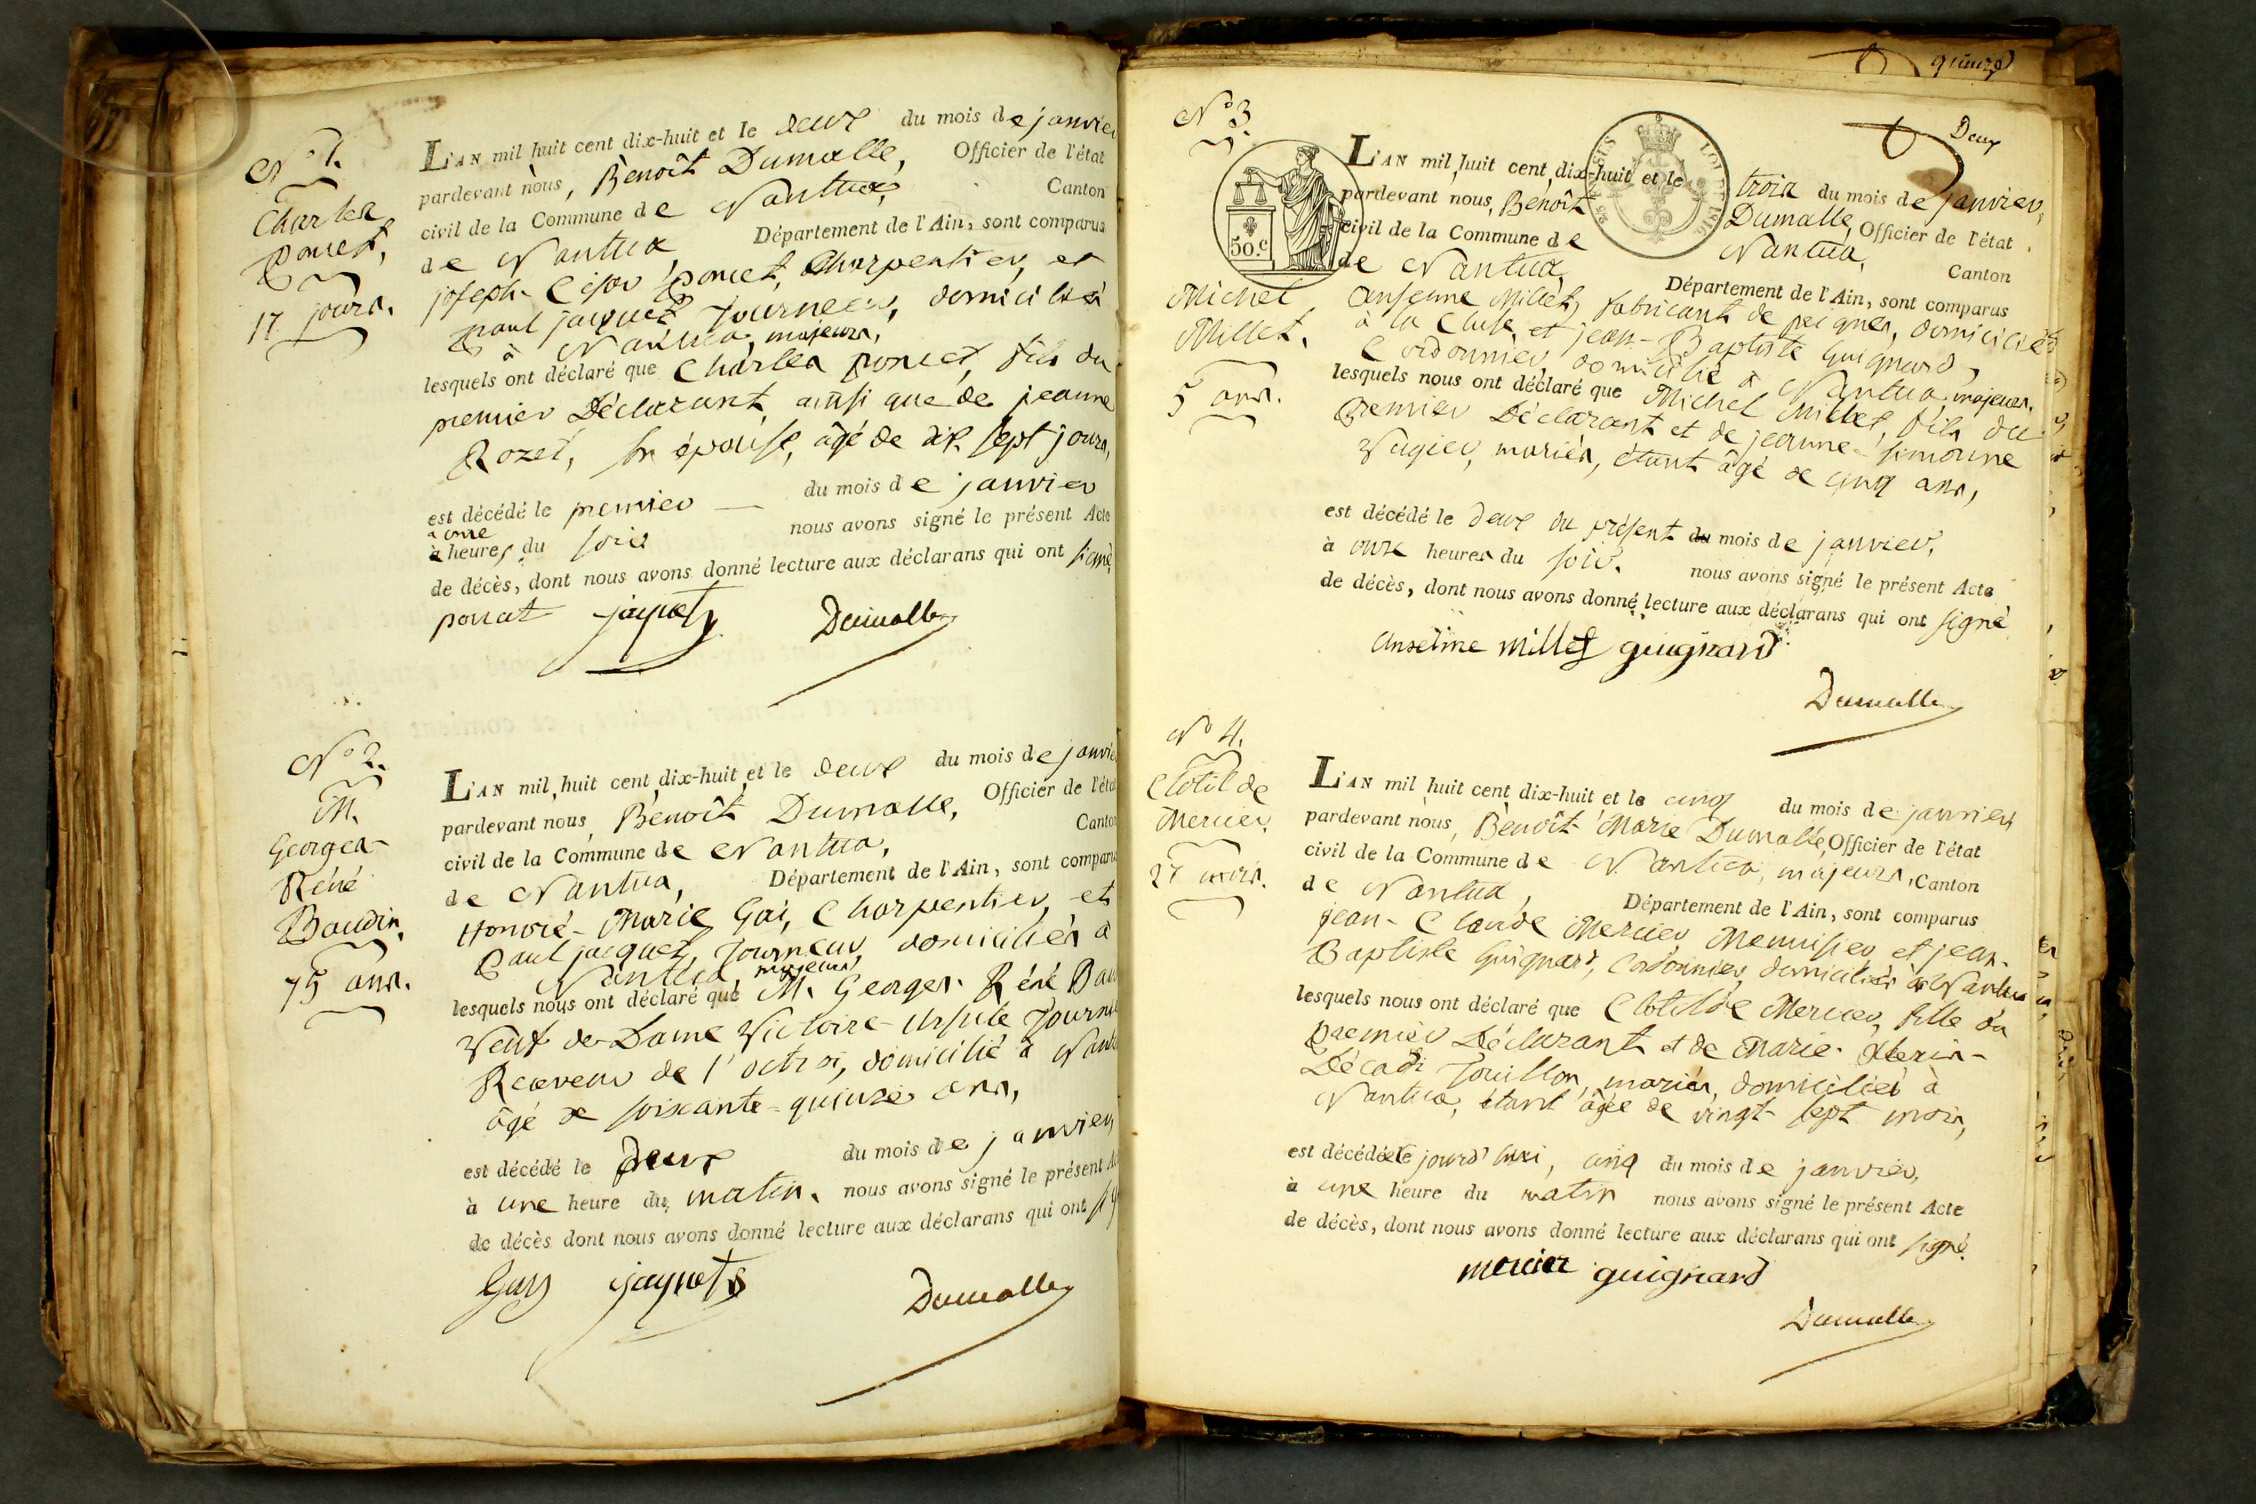 N° 1.
Charles
Poncet,
17 jours.
L'AN mil huit cent dix-huit et le deux du mois de janvier
pardevant nous, Benoît Dumolle, Officier de l'état
civil de la Commune de Nantua, Canton
de Nantua, Département de l'Ain, sont comparus
joseph César poncet, Charpentier, et
paul jacquet, Tourneur, domiciliés
à Nantua, majeurs,
lesquels ont déclaré que Charles poncet, fils du
premier Déclarant ainsi que de jeanne
Rozet, son épouse, âgé de dix sept jours,
est décédé le premier du mois de janvier
à onze
à heures du soir nous avons signé le présent Acte
de décès, dont nous avons donné lecture aux déclarans qui ont signé,
jaquet Dumolle
N° 2.
M.
Georges-
Réné
Baudin,
75 ans.
L'AN mil huit cent dix-huit et le deux du mois de janvie
pardevant nous Benoît Dumolle, Officier de l'état
civil de la Commune de Nantua, Canton
de Nantua, Département de l'Ain, sont comparu
Honoré-Marie Gai, Charpentier, et
Paul jacquet, Tourneur, domiciliés à
Nantua, majeurs,
lesquels nous ont déclaré que M. Georges-Réné Bau
Veuf de Dame Victoire-Ursule
Receveur de l'octroi, domicilié à Nant
âgé de soixante-quinze ans,
est décédé le deux du mois de janvier,
à une heure du matin. nous avons signé le présent A
de décès dont nous avons donné lecture aux déclarans qui ont sig
Guy jaquet Dumolle
quinze
Deux
N° 3.
Michel
Millet.
5 ans.
50.c
L'AN mil huit cent dix-huit et le trois du mois de janvier,
pardevant nous, Benoît Dumolle, Officier de l'état
civil de la Commune de Nantua, Canton
de Nantua, Département de l'Ain, sont comparus
Anselme Millet, fabricant de peignes, domicilié
à la Cluse, et jean-Baptiste Guignard,
Cordonnier, domicilié à Nantua, majeurs,
lesquels nous ont déclaré que Michel Millet, fils du
premier Déclarant et de jeanne-simonne
Vugier, mariés, étant âgé de cinq ans,
est décédé le deux du présent du mois de janvier,
à onze heures du soir. nous avons signé le présent Acte
de décès, dont nous avons donné lecture aux déclarans qui ont signé
anselme millet guignard
Dumolle
N° 4.
Clotilde
Mercier.
27 mois.
L'AN mil huit cent dix-huit et le cinq du mois de janvier
pardevant nous, Benoît Marie Dumolle, Officier de l'état
civil de la Commune de Nantua, majeurs, Canton
de Nantua, Département de l'Ain, sont comparus
jean-Claude Mercier, Menuisier et jean-
Baptiste Guignard, Cordonnier, domiciliés à Nantua
lesquels nous ont déclaré que Clotilde Mercier, fille du
premier Déclarant et de Marie-
Décadi Jouillon, mariés, domiciliés à
Nantua, étant âgée de vingt-sept mois,
est décédée cejourd'hui, cinq du mois de janvier,
à une heure du matin nous avons signé le présent Acte
de décès, dont nous avons donné lecture aux déclarans qui ont signé.
mercier guignard
Dumolle